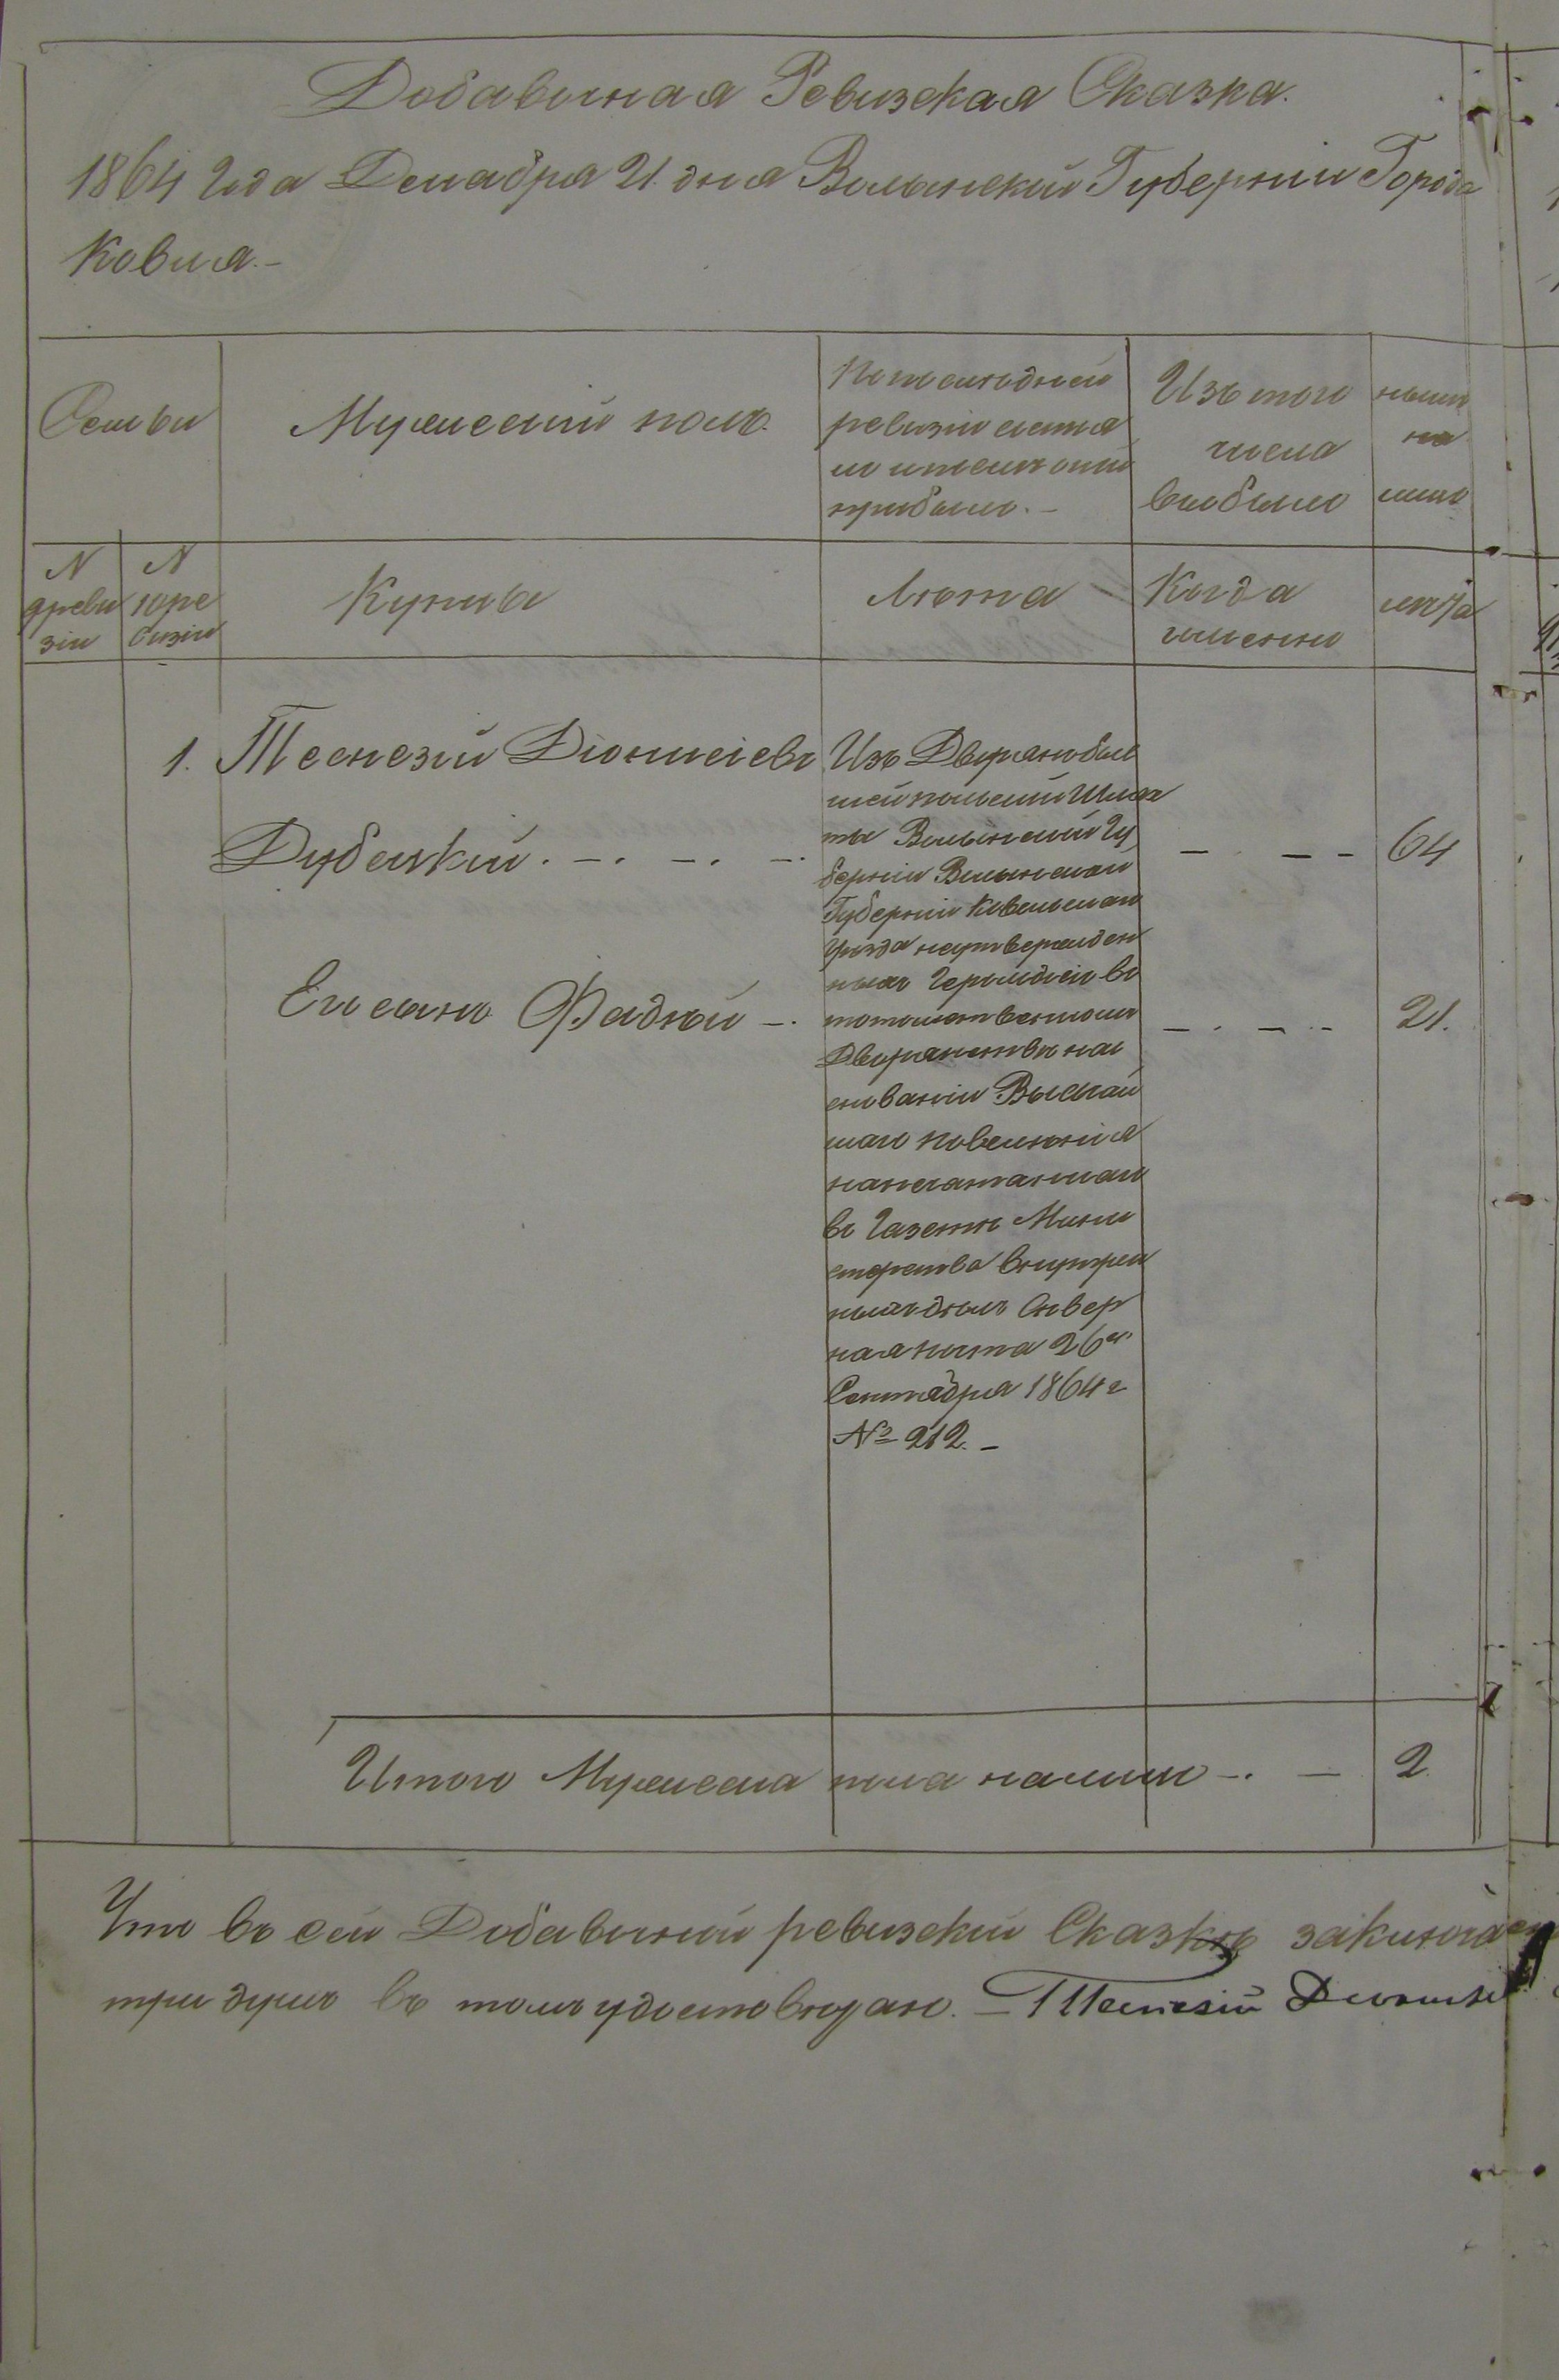 Добавочная Ревизская Сказка.
1864 Года Декабря 21 дня Волынской Губерніи Города
Ковля.-
Семьи
Мужеский полъ.
По последней
ревизіи состоя
ло и после оной
прибыло.-
Изъ того
числа
выбыло
ныне
на
лицо
N
N
ревизіи
Купцы
Лета
Когда
именно
лета
1.
Діонисіевъ
Дубецкий. -. -. -.
Изъ Дворянъ быв
шей польской Шлях
ты Волынской Гу
берніи Волынской
Губерніи Ковельскаго
уезда неутвержден
ныхъ Герольдіею въ
потомственномъ
Дворянстве на о
сновании Высочай
шаго повеленія
напечатаннаго
въ Газете Мини
стерства внутрен
ныхъ делъ Север
ная почта 26го
Сентября 1864 г
№ 212.-
- - - 64
Его сынъ Фадей -.
- . - . - 21.
Итого Мужеска пола налицо -. - 2
Что въ сей Добавочной ревизской Сказке
три душъ въ томъ удостоверяю. -